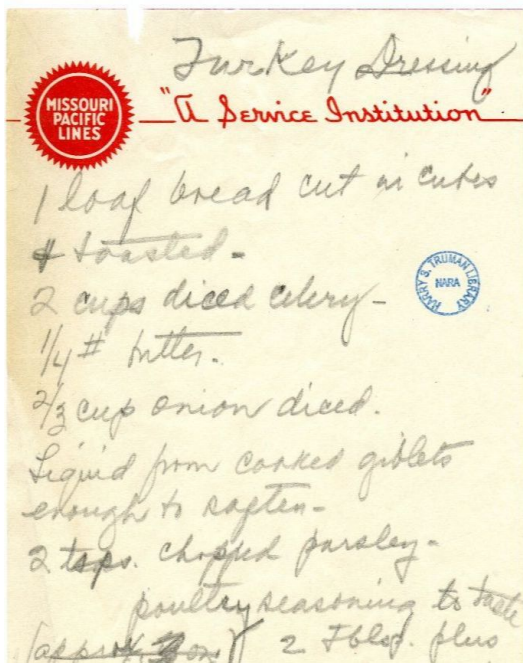 Turkey Dressing
MISSOURI
PACIFIC
LINES
"A Service Institution"
1 loaf bread cut in cubes
& toasted -
HARRY S. TRUMAN LIBRARY
NARA
2 cups diced celery -
1/4 # butter.
2/3 cup onion diced.
Liquid from cooked giblets
enough to soften -
2 tsps. chopped parsley -
poultry seasoning to taste
(approx. 2 Tblsp. plus